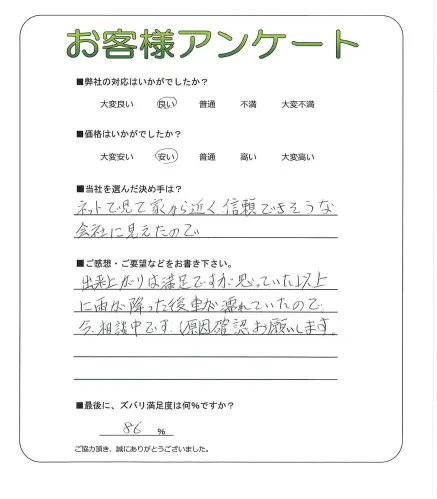 お客様アンケート
■弊社の対応はいかがでしたか？
大変良い　良い　普通　不満　大変不満
■価格はいかがでしたか？
大変安い　安い　普通　高い　大変高い
■当社を選んだ決め手は？
ネットで見て家から近く信頼できそうな
会社に見えたので
■ご感想・ご要望などをお書き下さい。
出来上がりは満足ですが思っていた以上
に雨が降った後車が濡れていたので、
今、相談中です、原因確認お願いします。
■最後に、ズバリ満足度は何%ですか？
86 %
ご協力頂き、誠にありがとうございました。